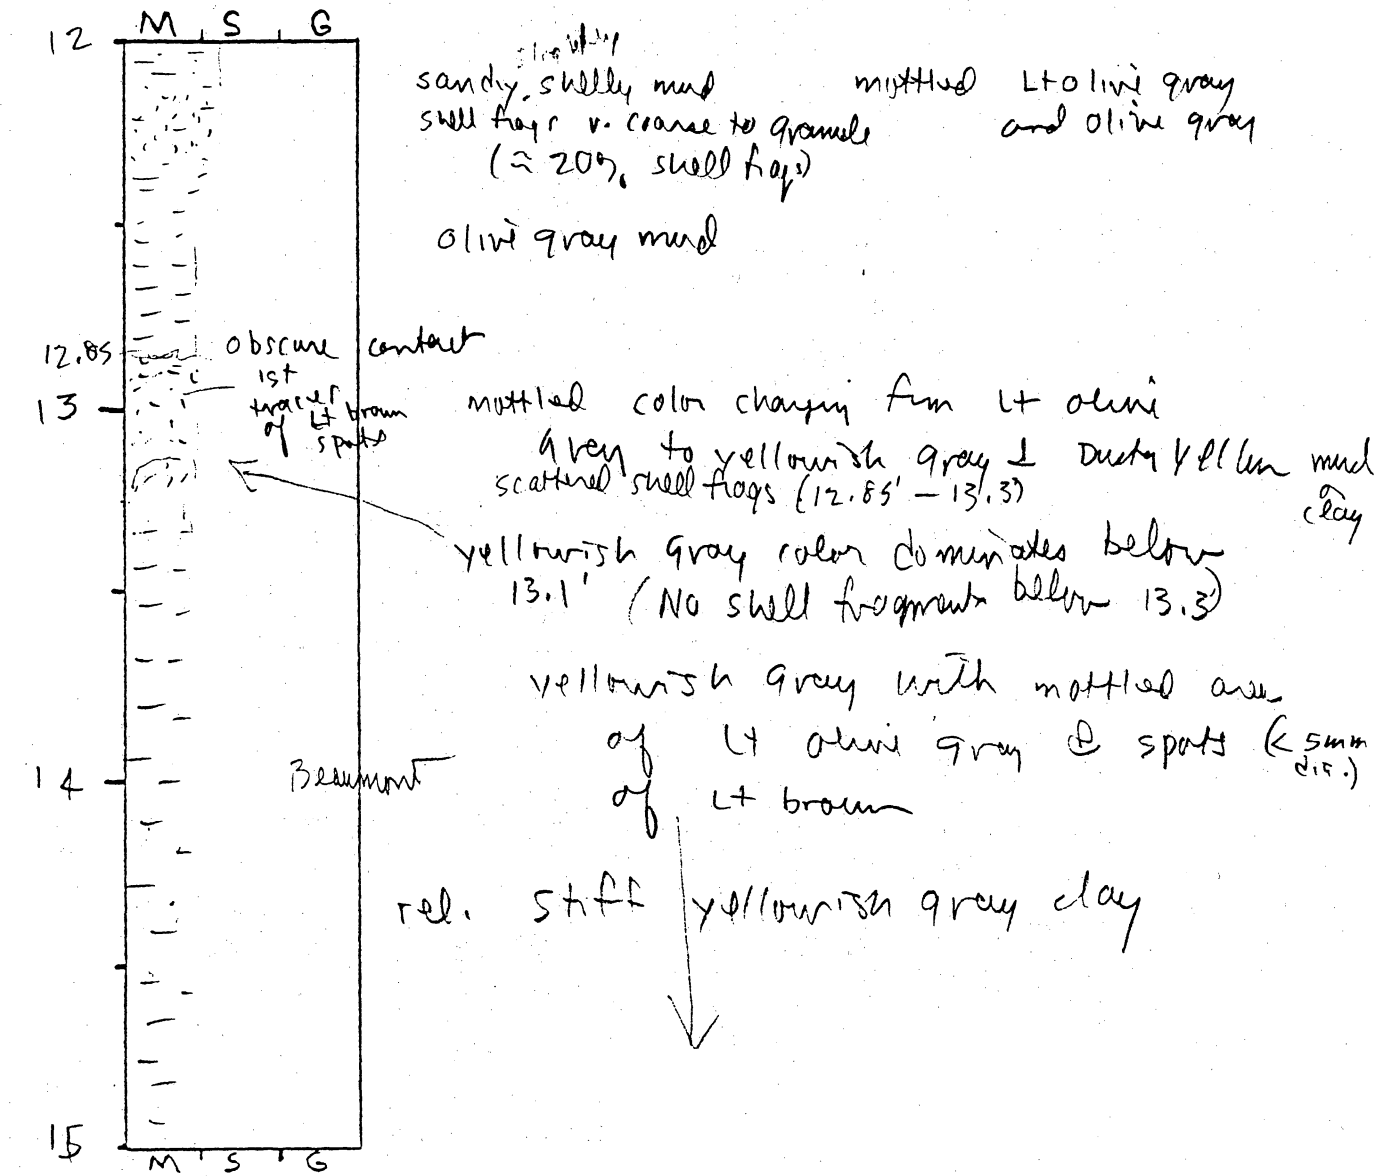 M S G
12
slightly
sandy, shelly mud mottled Lt olive gray
shell frags v. coarse to granule and olive gray
(≈ 20% shell frags)
olive gray mud
12.85 obscure contact
1st
traces Lt brown
of spots
13 mottled color changing from Lt olive
gray to yellowish gray & Dusky Yellow mud
clay
scattered shell frags (12.85' – 13.3')
yellowish gray color dominates below
13.1' (No shell fragments below 13.3')
yellowish gray with mottled areas
of Lt olive gray & spots (< 5mm
dia.)
14 Beaumont of Lt brown
rel. stiff yellowish gray clay
15
M S G